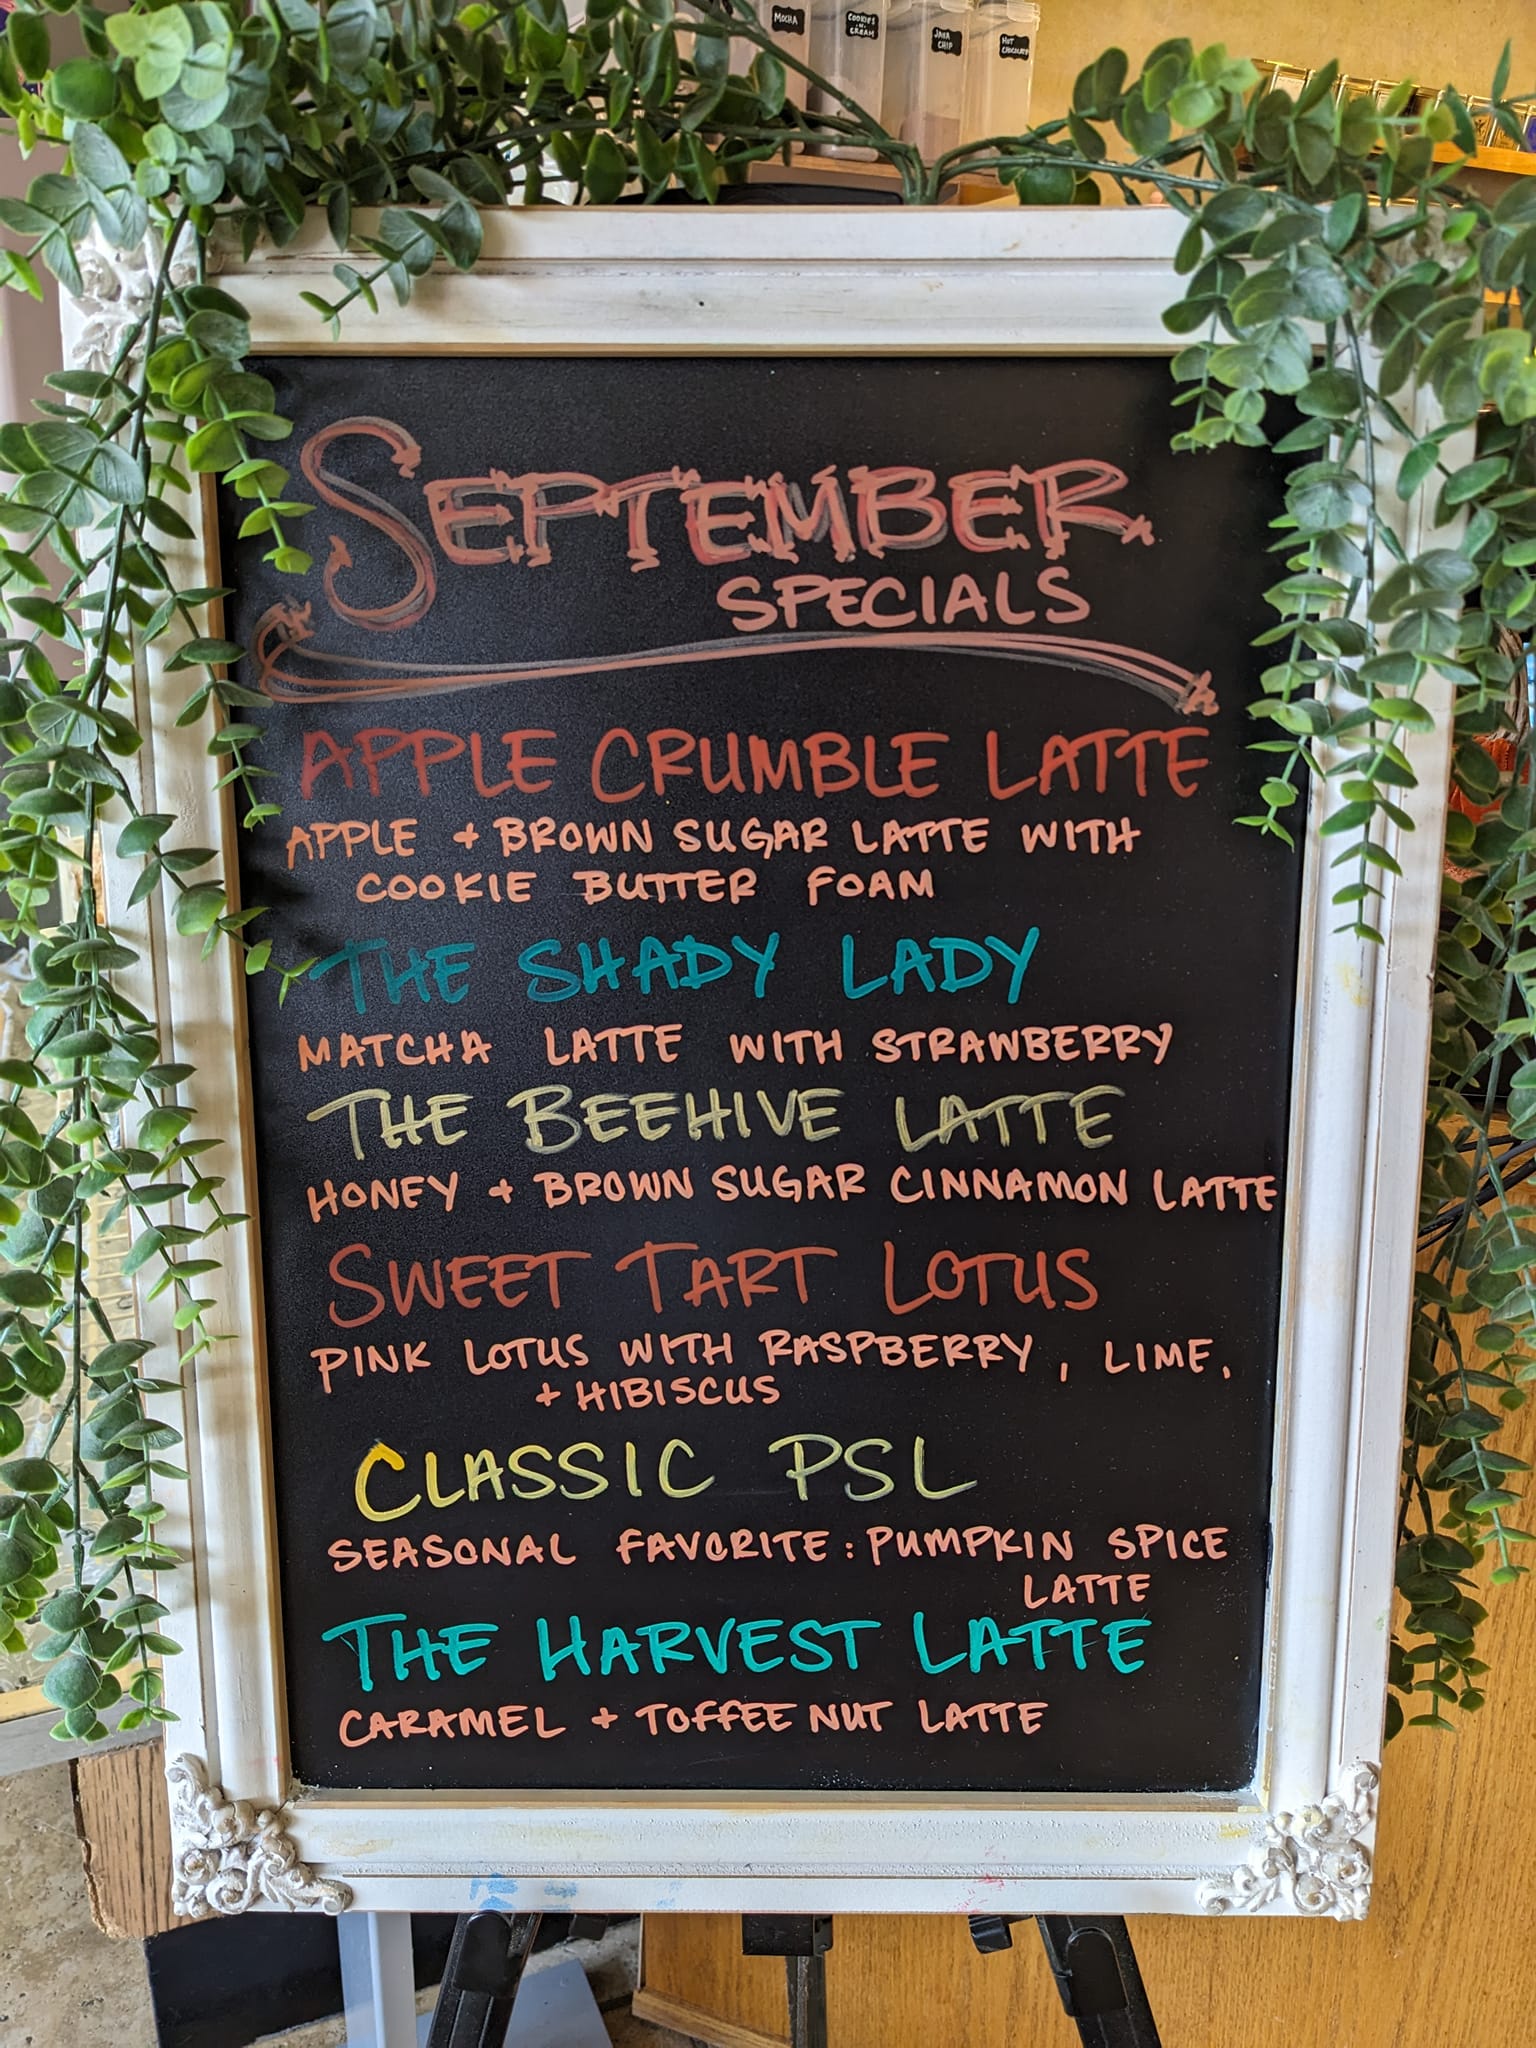 MOCHA
COOKIES
-N-
CREAM
JAVA
CHIP
HOT
CHOCOLATE
SEPTEMBER
SPECIALS
APPLE CRUMBLE LATTE
APPLE + BROWN SUGAR LATTE WITH
COOKIE BUTTER FOAM
THE SHADY LADY
MATCHA LATTE WITH STRAWBERRY
THE BEEHIVE LATTE
HONEY + BROWN SUGAR CINNAMON LATTE
SWEET TART LOTUS
PINK LOTUS WITH RASPBERRY, LIME,
+ HIBISCUS
CLASSIC PSL
SEASONAL FAVORITE: PUMPKIN SPICE
LATTE
THE HARVEST LATTE
CARAMEL + TOFFEE NUT LATTE